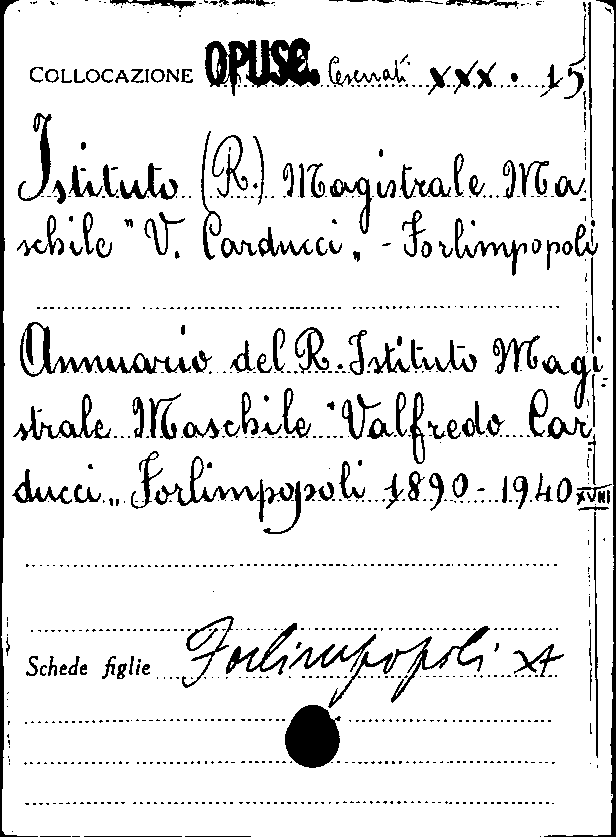 COLLOCAZIONE OPUSC. Cesenati XXX. 15
Istituto (R.) Magistrale Ma
schile "V. Carducci„ - Forlimpopoli
Annuario del R. Istituto Magi
strale Maschile "Valfredo Car
ducci„ Forlimpopoli 1890-1940 XVIII
Schede figlie Forlimpopoli